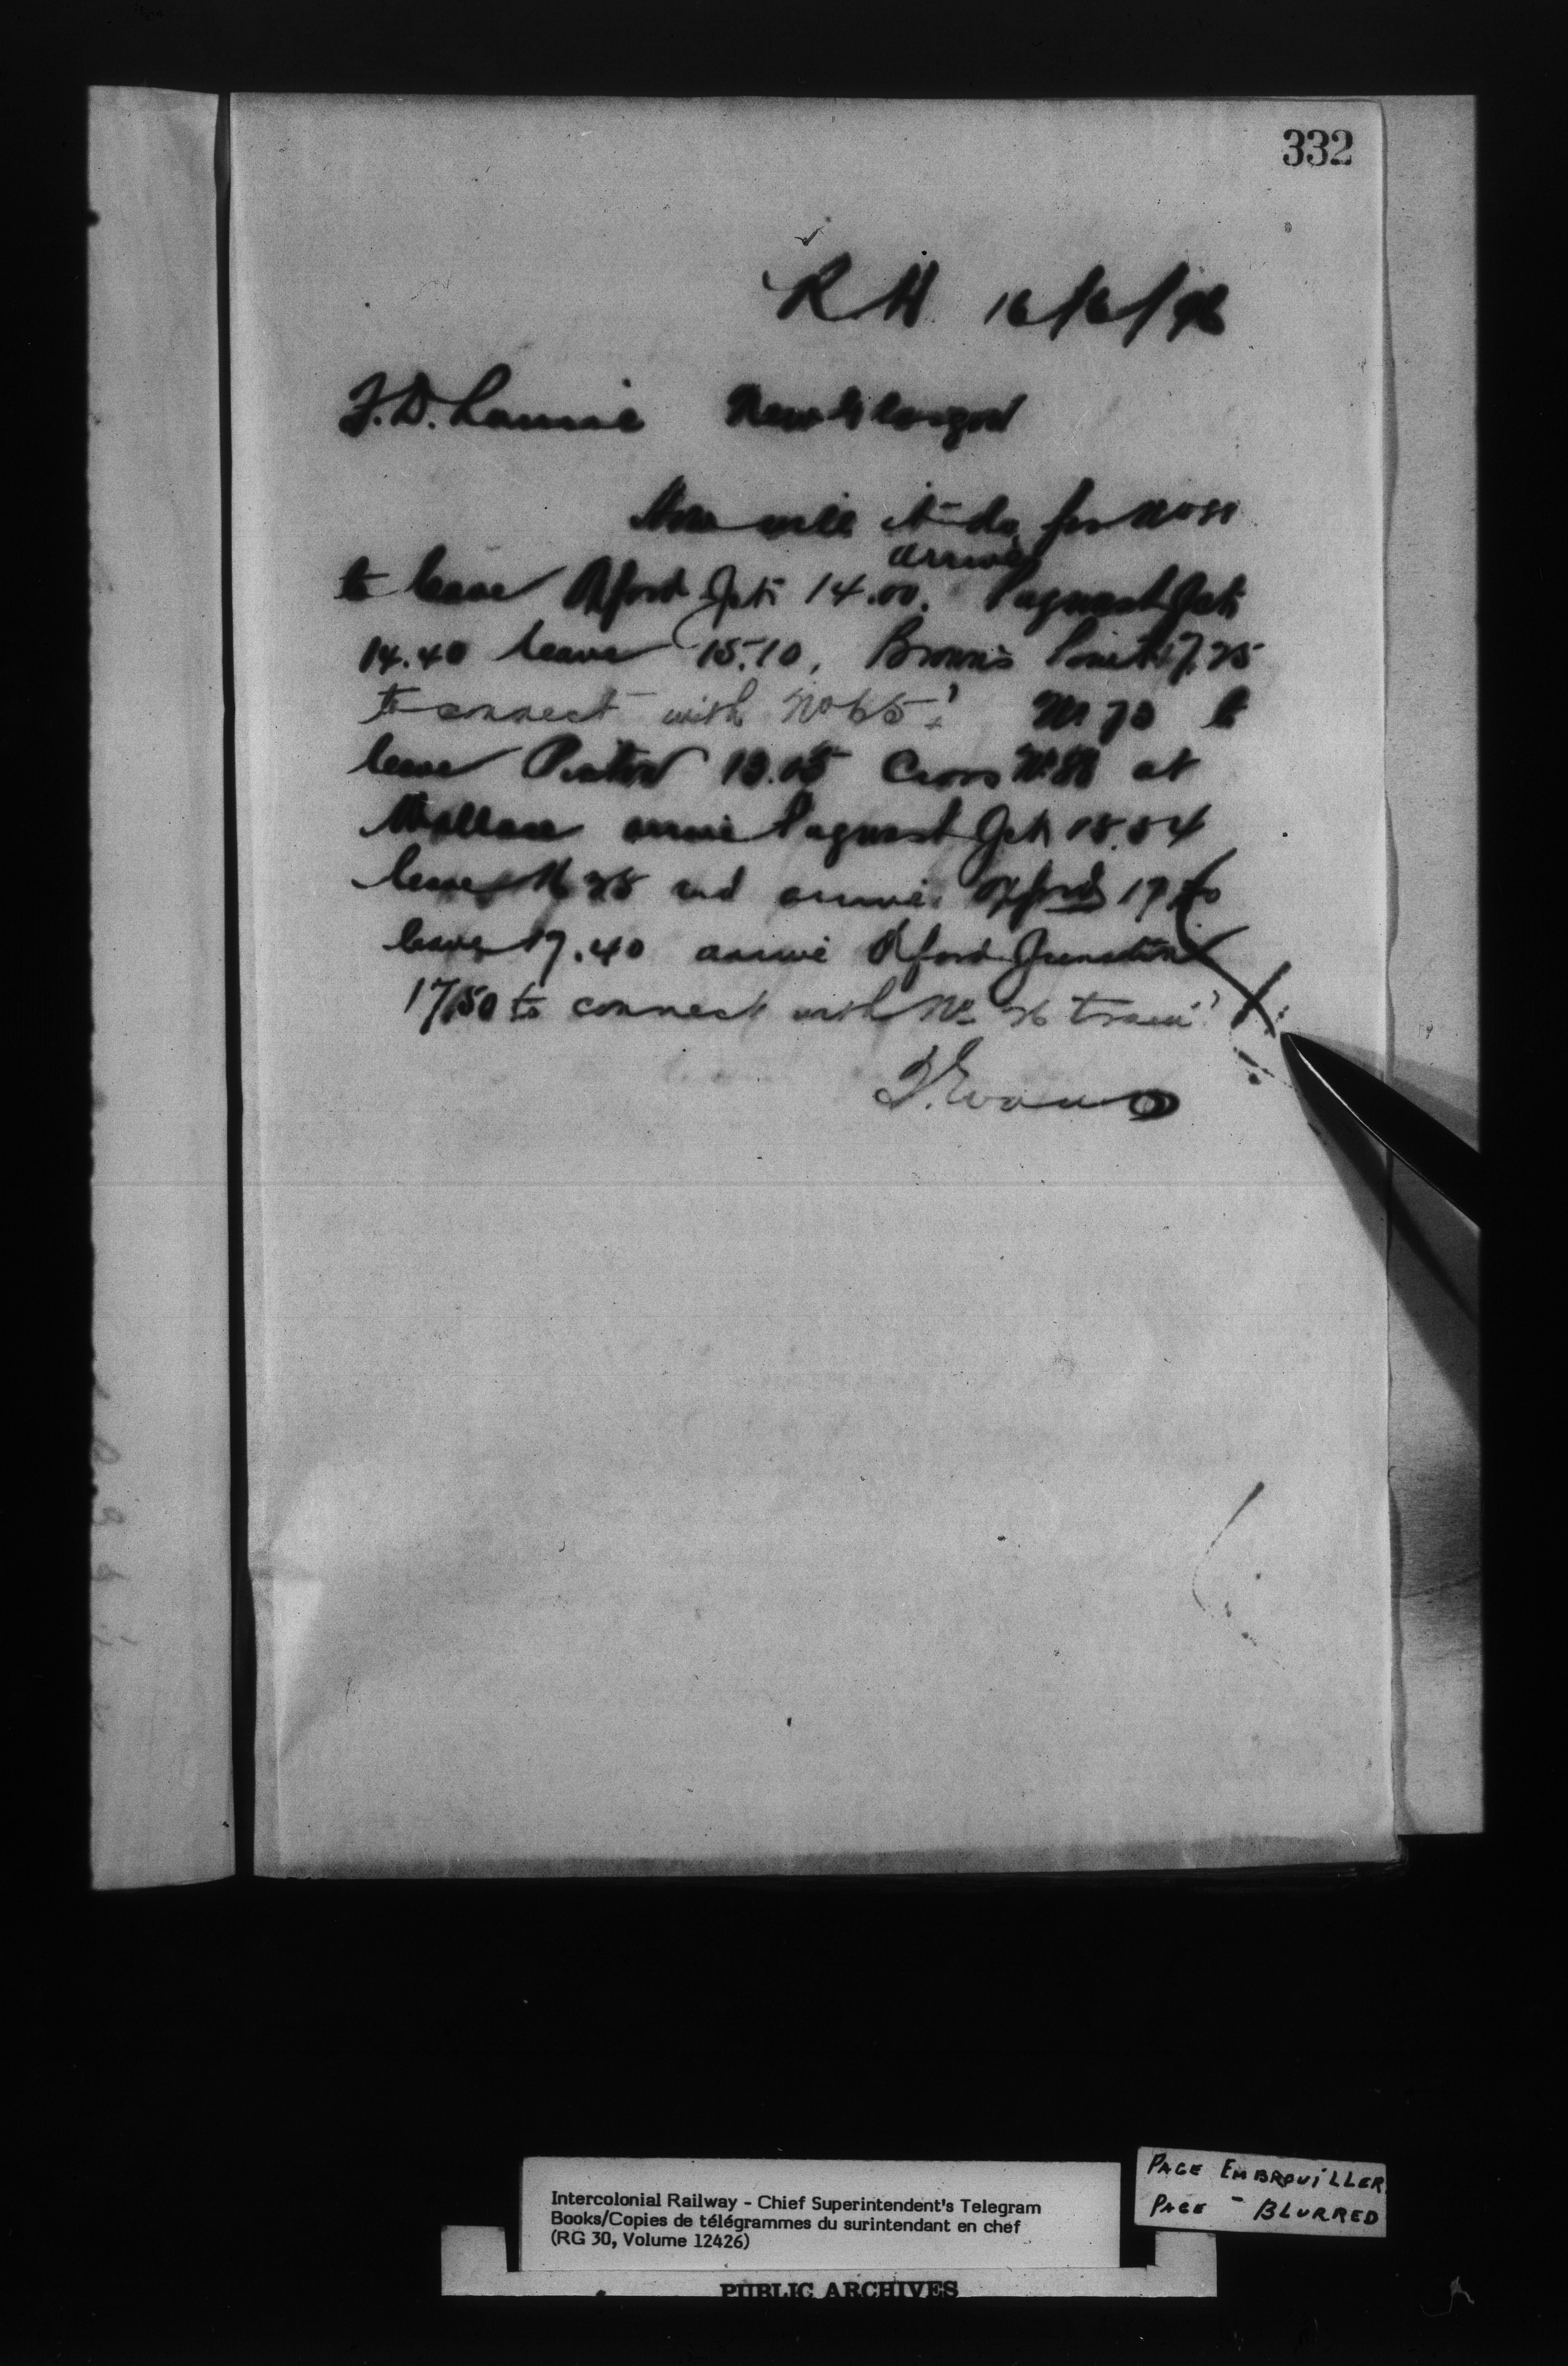 332
R.H. 16/6/96
F.D. Laurie New Glasgow
How will it do for No 81
to leave Oxford Jct. 14.00. arrive Pugwash Jct.
14.40 leave 15.10, Brown's Point 17.25
to connect with No 65? No 70 to
leave Pictou 13.05 Cross No 81 at
Wallace arrive Pugwash Jct.
leave and arrive Oxford
leave 17.40 arrive Oxford Junction
17.50 to connect with No train?
J. Evans
Intercolonial Railway - Chief Superintendent's Telegram
Books/Copies de télégrammes du surintendant en chef
(RG 30, Volume 12426)
PAGE EMBROUILLER
PAGE - BLURRED
PUBLIC ARCHIVES